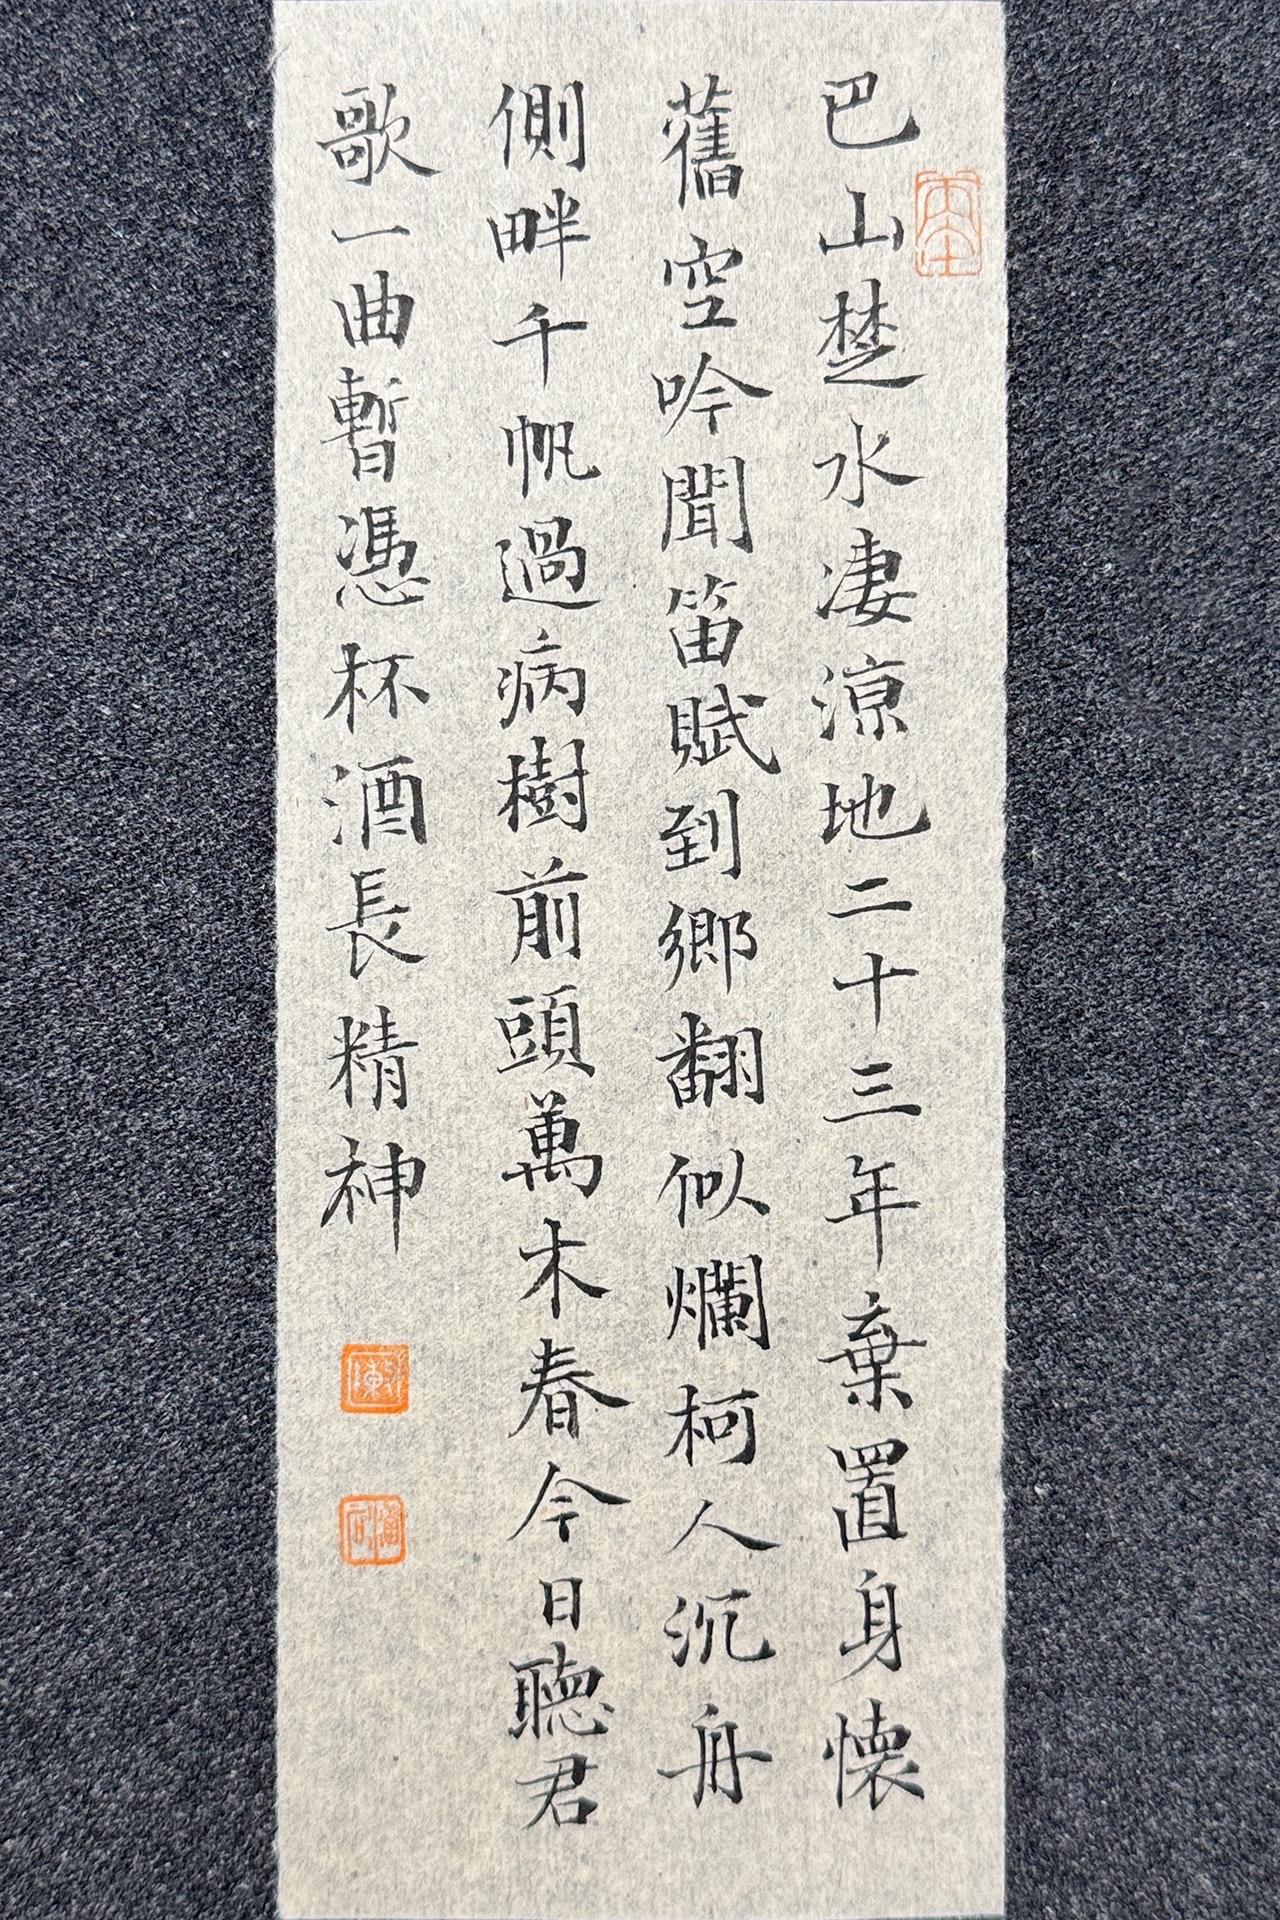 巴山楚水凄涼地二十三年棄置身懷
舊空吟聞笛賦到鄉翻似爛柯人沉舟
側畔千帆過病樹前頭萬木春今日聽君
歌一曲暫憑杯酒長精神